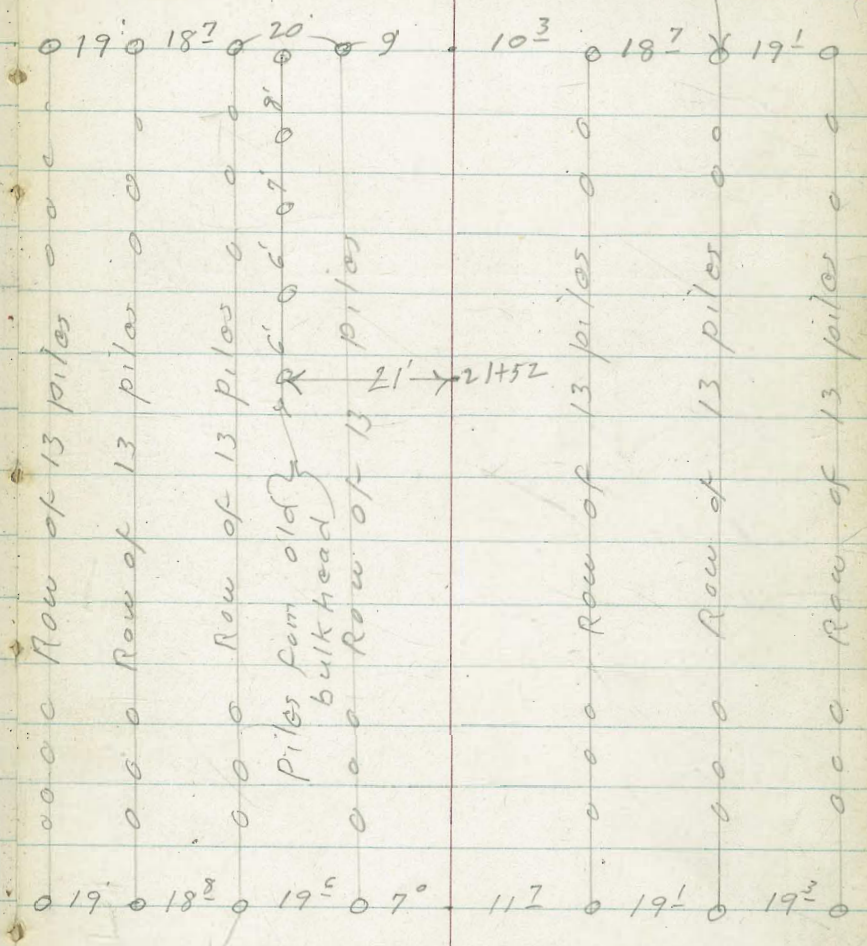 19' 18 7 20 9' 10 3 18 7 19 1
8'
7'
6'
6'
21' 21+52
Row of 13 piles
Row of 13 piles
Row of 13 piles
Piles fom old
bulkhead
Row of 13 piles
Row of 13 piles
Row of 13 piles
Row of 13 piles
19' 18 8 19 6 7 0 11 7 19 1 19 3